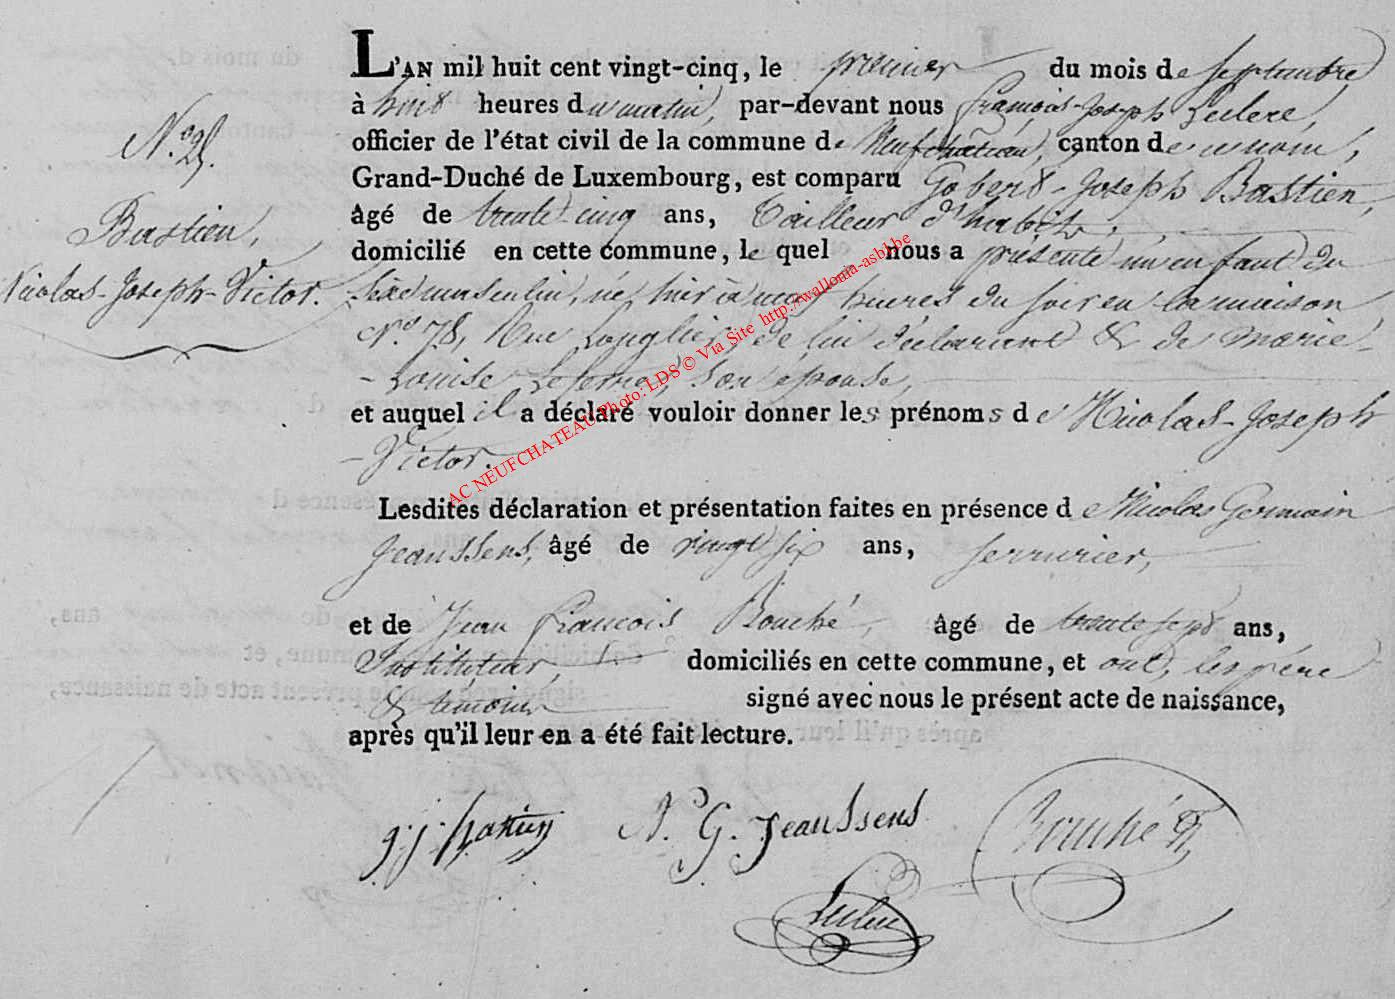 L'AN mil huit cent vingt-cinq, le premier du mois de septembre,
à huit heures du matin, par-devant nous françois-Joseph Leclerc,
officier de l'état civil de la commune de Neufchâteau, canton de ce nom,
Grand-Duché de Luxembourg, est comparu Gobert-Joseph Bastien,
âgé de trente cinq ans, Tailleur d'habits,
domicilié en cette commune, le quel nous a présenté un enfant du
Sexe masculin, né hier à neuf heures du soir en la maison
N.º 78, Rue Longlier, de lui déclarant & de Marie-
-Louise son épouse,
et auquel il a déclaré vouloir donner les prénoms de Nicolas-Joseph
-Victor.
Lesdites déclaration et présentation faites en présence de Nicolas Germain
Jeanssens, âgé de vingt six ans, serrurier,
et de Jean françois Bouché, âgé de trente sept ans,
Instituteur, domiciliés en cette commune, et ont, les père
& témoins signé avec nous le présent acte de naissance,
après qu'il leur en a été fait lecture.
N.º 25.
Bastien,
Nicolas-Joseph-Victor.
g. j. Bastien N. G. Jeanssens Bouché
Leclerc
AC NEUFCHATEAU Photo: LDS © Via Site http://wallonia-asbl.be